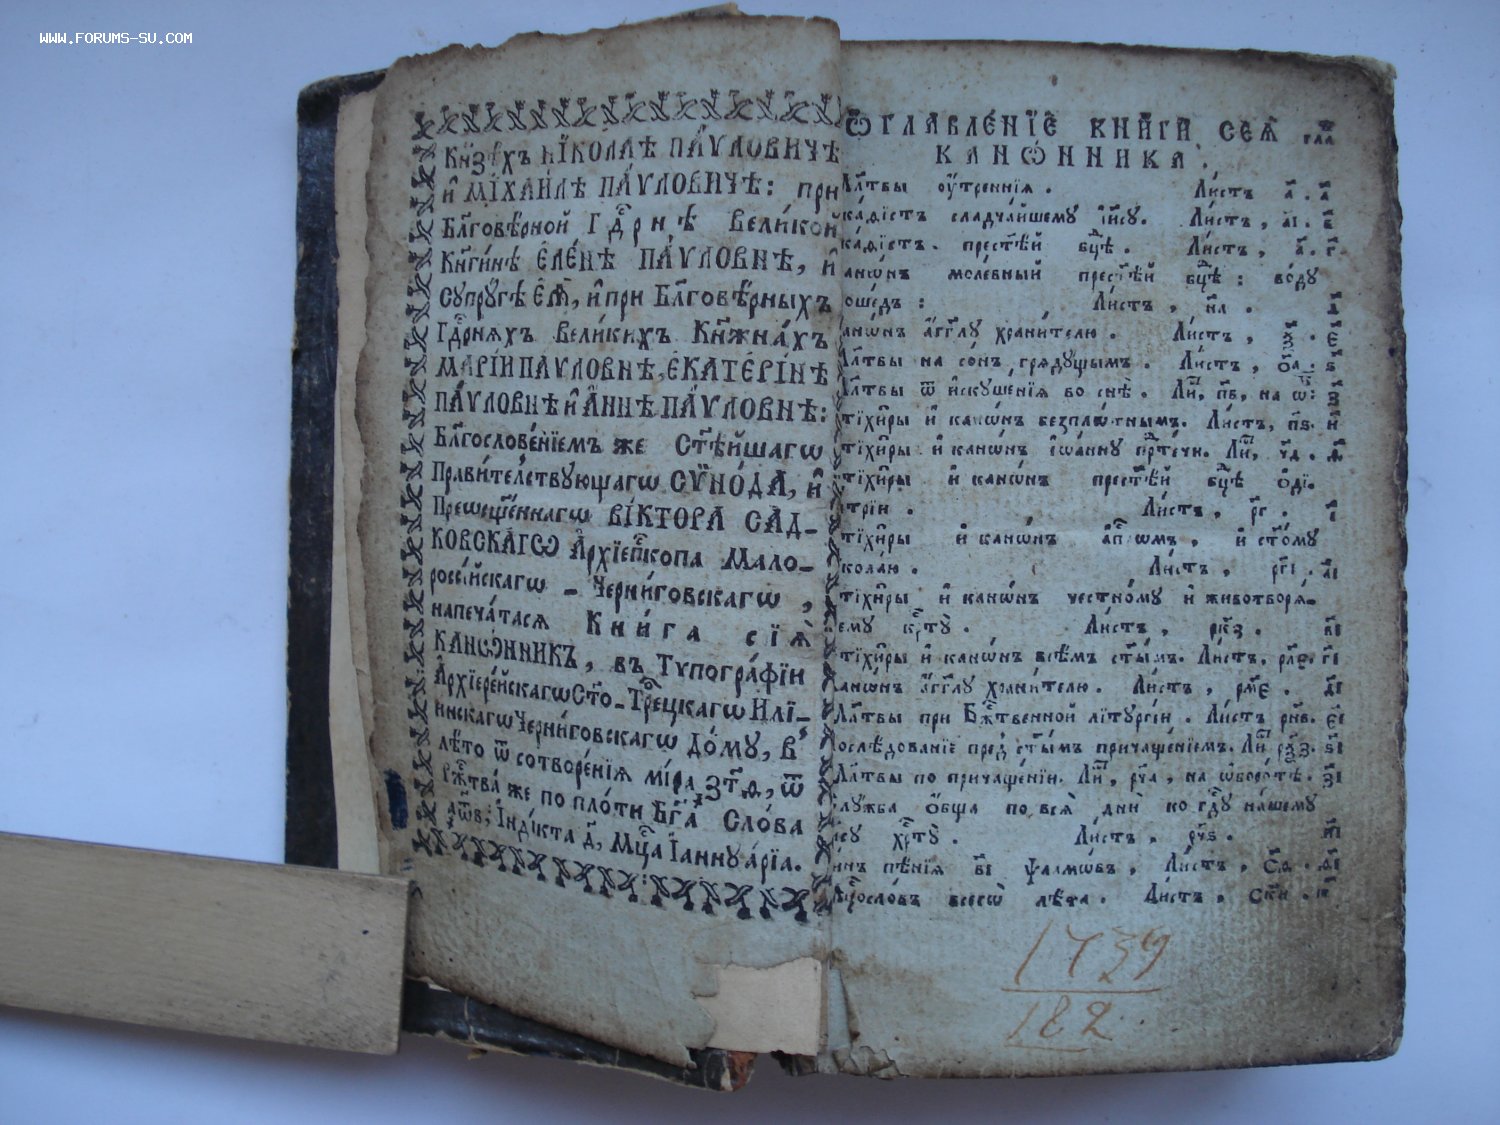 WWW.FORUMS-SU.COM
Кн҃зехъ НЇКОЛАѢ ПА́ѴЛОВИЧѢ
и҆ МІХАИ́ЛѢ ПА́ѴЛОВИЧѢ: при
Бл҃говѣ́рной Гдⷭ҇рнѣ Вели́кой
Кн҃ги́нѣ ЕЛЕ́НѢ ПА́ѴЛОВНѢ, и҆
Супру́гѣ Еѧ̀, и҆ при Бл҃говѣ́рныхъ
Гдⷭ҇рняхъ Вели́кихъ Кн҃жна́хъ
МАРІ́И ПАѴЛОВНѢ, ЕКАТЕРІ́НѢ
ПА́ѴЛОВНѢ и҆ А҆́ННѢ ПА́ѴЛОВНѢ:
Бл҃гослове́нїемъ же Ст҃ѣ́йшагѡ
Прави́телствующагѡ СѴНО́ДА, и҆
Преѡсщ҃е́ннагѡ ВІ́КТОРА САД-
КОВСКА́ГѠ А҆рхїепⷭ҇копа Мало-
россі́йскагѡ - Черни́говскагѡ,
напеча́тася Кни́га сїѧ̀
КАНѠ́ННИКЪ, въ Тѵпогра́фїи
А҆рхїере́йскагѡ Ст҃о-Трⷪ҇ецкагѡ Илї-
и́нскагѡ Черни́говскагѡ До́му, в̾
лѣ́то ѿ сотворе́нїя мі́ра ҂зт҃ѕ, ѿ
Рж҇тва̀ же по пло́ти Бг҃а Сло́ва
І҆ндї́кта а҃, Мцⷭ҇а І҆аннуа́рїа.
Ѡ҆ГЛАВЛЕ́НЇЕ КНИ́ГИ СЕѦ̀ гла
КАНѠ́ННИКА.
Мл҃твы оу҆́треннїя. Ли́стъ а҃. а҃
ка́ѳїстъ сладча́йшему І҆и҃су. Ли́стъ, аі҃. в҃
ка́ѳїстъ. прест҃ѣ́й бцⷣѣ. Ли́стъ, л҃. г҃
анѡ́нъ моле́бный прест҃ѣ́й бцⷣѣ: во́ду
оше́дъ: Ли́стъ, на҃. д҃
анѡ́нъ а҆́гг҃лу храни́телю. Ли́стъ, ѯ҃. е҃
Мл҃твы на со́нъ гряду́щымъ. Ли́стъ, оа҃. ѕ҃
Мл҃твы ѿ и҆скуше́нїя во снѣ̀. Лиⷭ҇, пв҃, на ѡ҆: з҃
тїхи҃ры и҆ канѡ́нъ безплѡ́тнымъ. Ли́стъ, пѕ҃. и҃
тїхи҃ры и҆ канѡ́нъ І҆ѡа́нну прⷣте́чи. Лиⷭ҇, чд҃. ѳ҃
тїхи҃ры и҆ канѡ́нъ прест҃ѣ́й бцⷣѣ ѻ҆ді-
трїи. Ли́стъ, рг҃. і҃
тїхи҃ры и҆ канѡ́нъ а҆пⷭ҇лѡмъ, и҆ ст҃о́му
кола́ю. Ли́стъ,ргі҃. аі҃
тїхи҃ры и҆ канѡ́нъ честно́му и҆ животворя́-
ему крⷭ҇ту̀. Ли́стъ, ркз҃. ві҃
тїхи҃ры и҆ канѡ́нъ всѣ́мъ ст҃ы́мъ. Ли́стъ, рле҃. гі҃
анѡ́нъ а҆́гг҃лу храни́телю. Ли́стъ, рме҃. ді҃
Мл҃твы при Бж҃е́ственной лїтургі́и. Ли́стъ рнв҃. еі҃
ослѣ́дованїе пред ст҃ы́мъ причаще́нїемъ. Лиⷭ҇ рѯз҃. ѕі҃
Мл҃твы по причаще́нїи. Лиⷭ҇, рча҃, на ѡ҆боро́тѣ. зі҃
лу́жба ѻ҆́бща по всѧ̀ дни̂ ко гдⷭ҇у на́шему
ису хрⷭ҇ту̀. Ли́стъ, рчѕ҃. иі҃
инъ пѣ́нїя ві҃ ѱалмѡ́въ, Ли́стъ, сд҃. ѳі҃
мцⷭ҇осло́въ всегѡ̀ лѣ́та. Ли́стъ, ски҃. к҃
1739
182